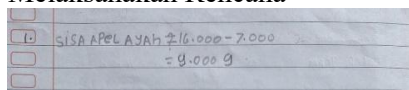 Melaksanakan Rencana
1. SISA APEL AYAH = 16.000 - 7.000
= 9.000 g